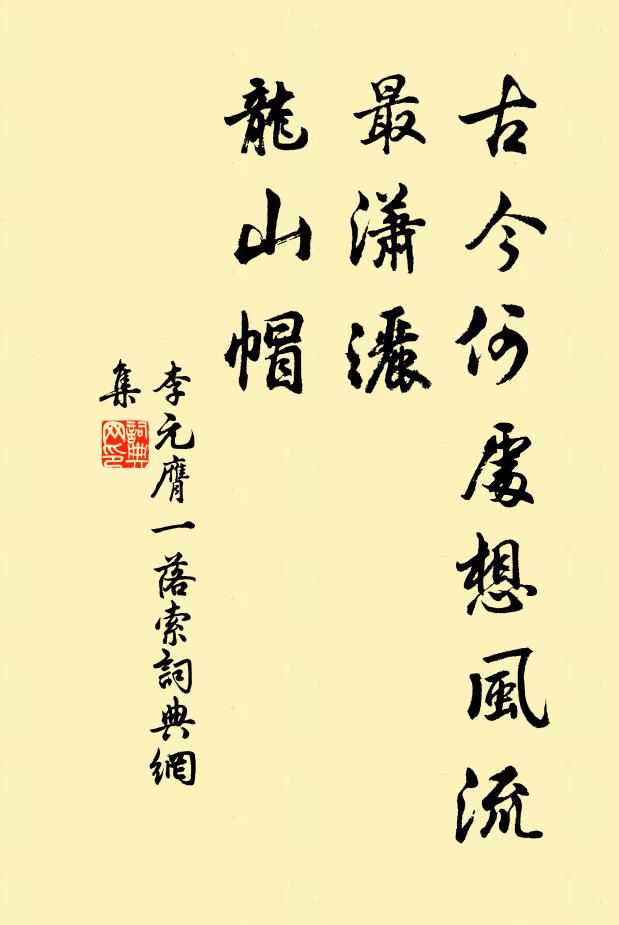 古今何處想風流
最瀟灑
龍山帽
李元膺一落索詞典網
集
詞典
网印